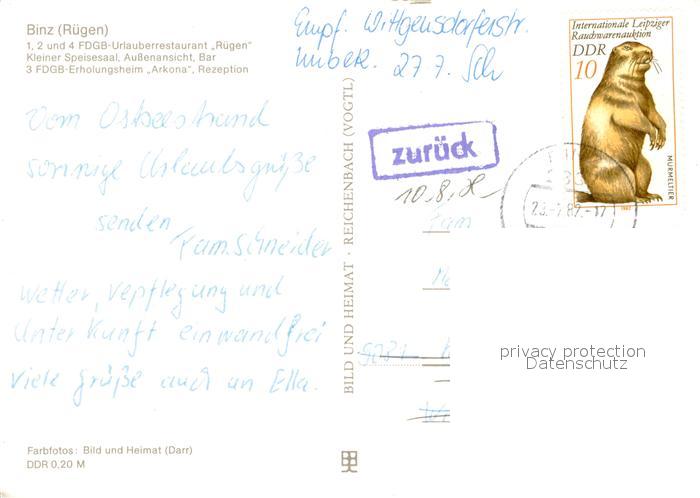 Binz (Rügen)
1, 2 und 4 FDGB-Urlauberrestaurant „Rügen"
Kleiner Speisesaal, Außenansicht, Bar
3 FDGB-Erholungsheim „Arkona", Rezeption
Empf. Wittgensdorferstr.
unbek. 27 7. Sch
Internationale Leipziger
Rauchwarenauktion
DDR
10
MURMELTIER
1982
zurück
10.8.
Vom Ostseestrand
sonnige Urlaubsgrüße
senden
Fam. Schneider
Wetter, Vepflegung und
Unterkunft einwandfrei
viele grüße auch an Ella.
BILD UND HEIMAT · REICHENBACH (VOGTL)
Fam
privacy protection
Datenschutz
Farbfotos: Bild und Heimat (Darr)
DDR 0,20 M